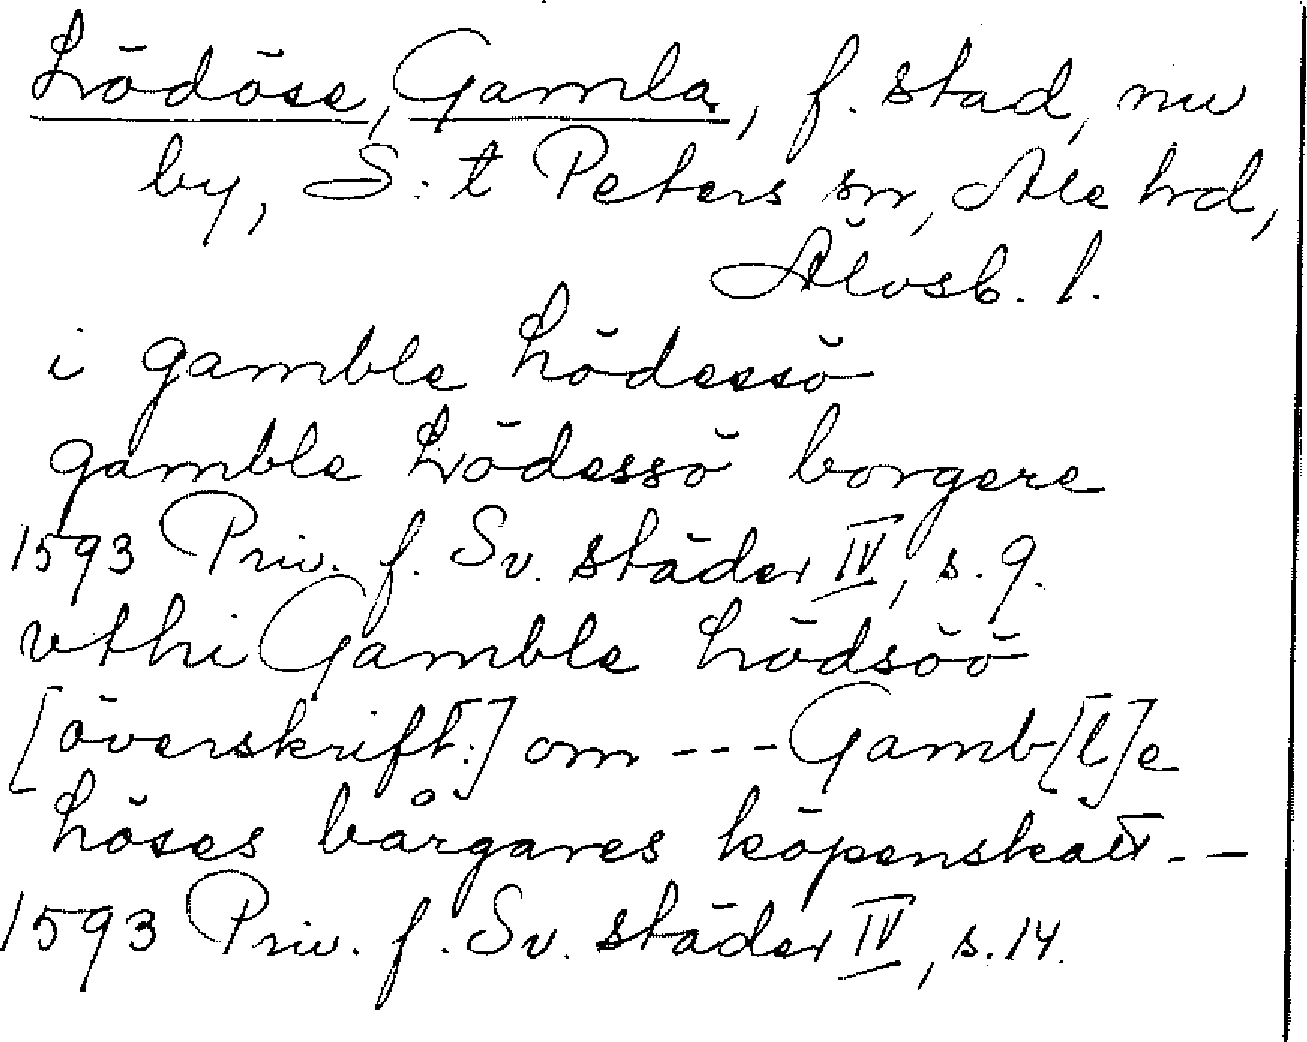 Lödöse, Gamla, f. stad, nu
by, S:t Peters sn, Ale hd,
Älvsb. l.
i gamble Lödessö
gamble Lödessö borgere
1593 Priv. f. Sv. städer IV, s. 9.
vthi Gamble Lödsöö
[överskrift:] om --- Gamb[l]e
Löses bårgares köpenskatt --
1593 Priv. f. Sv. städer IV, s. 14.